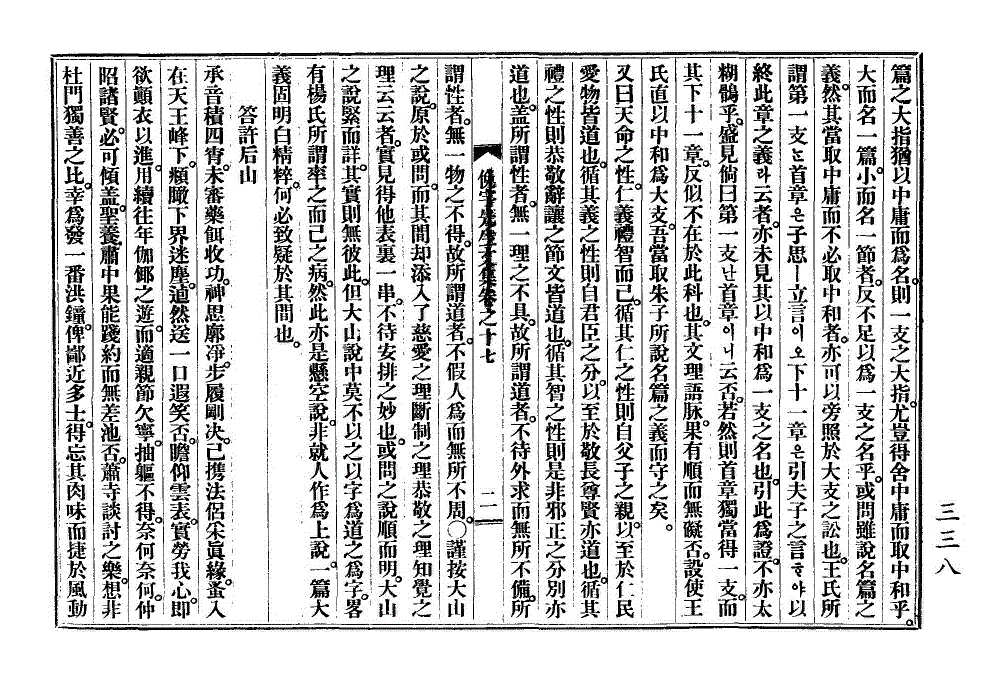 篇之大指猶以中庸而爲名。則一支之大指。尤豈得舍中庸而取中和乎。
大而名一篇。小而名一節者。反不足以爲一支之名乎。或問雖說名篇之
義。然其當取中庸而不必取中和者。亦可以旁照於大支之訟也。王氏所
謂第一支ᄂᆞᆫ首章은子思ㅣ立言이오下十一章은引夫子之言ᄒᆞ야以
終此章之義ᄅᆞ云者。亦未見其以中和爲一支之名也。引此爲證。不亦太
糊鶻乎。盛見倘曰第一支난首章이니云否。若然則首章獨當得一支。而
其下十一章。反似不在於此科也。其文理語脉。果有順而無礙否。設使王
氏直以中和爲大支。吾當取朱子所說名篇之義而守之矣。
又曰天命之性。仁義禮智而已。循其仁之性則自父子之親。以至於仁民
愛物皆道也。循其義之性則自君臣之分。以至於敬長尊賢亦道也。循其
禮之性則恭敬辭讓之節文皆道也。循其智之性則是非邪正之分別亦
道也。盖所謂性者。無一理之不具。故所謂道者。不待外求而無所不備。所
俛宇先生文集卷之十七
二
謂性者。無一物之不得。故所謂道者。不假人爲而無所不周。○謹按大山
之說。原於或問。而其間却添入了慈愛之理斷制之理恭敬之理知覺之
理云云者。實見得他表裏一串。不待安排之妙也。或問之說順而明。大山
之說緊而詳。其實則無彼此。但大山說中莫不以之以字爲道之爲字。畧
有楊氏所謂率之而已之病。然此亦是懸空說。非就人作爲上說。一篇大
義固明白精粹。何必致疑於其間也。
答許后山
承音積四冑。未審藥餌收功。神思廓净。步履剛决。已携法侶采眞緣。蚤入
在天王峰下。頫瞰下界迷塵。逌然送一口遐笑否。瞻仰雲表。實勞我心。即
欲顚衣以進。用續往年伽倻之遊。而適親節欠寧。抽軀不得。奈何奈何。仲
昭諸賢。必可傾盖。聖養,肅中果能踐約而無差池否。蕭寺談討之樂。想非
杜門獨善之比。幸爲發一番洪鐘。俾鄙近多士。得忘其肉味而捷於風動
三三八